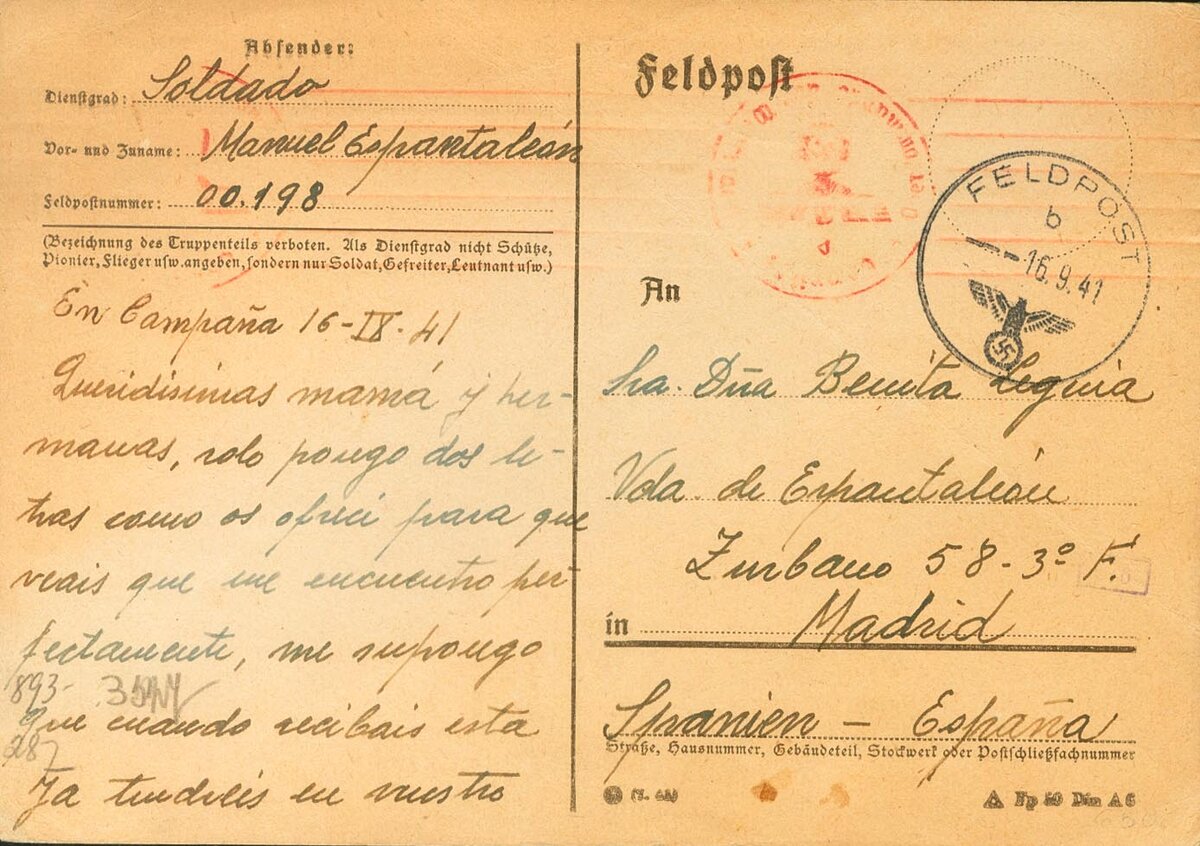 Absender:
Dienstgrad: Soldado
Vor- und Zuname: Manuel Espantaleón
Feldpostnummer: 00.198
(Bezeichnung des Truppenteils verboten. Als Dienstgrad nicht Schütze,
Pionier, Flieger usw. angeben, sondern nur Soldat, Gefreiter, Leutnant usw.)
En Campaña 16-IX-41
Queridisimas mamá y her-
manas, solo pongo dos le-
tras como os ofrecí para que
veais que me encuentro per-
fectamente, me supongo
893-
que cuando recibais esta
287
Ya tendréis en vuestro
Feldpost
FELDPOST
b
16.9.41
An
Sra. Dña Benita Leguia
Vda. de Espantaleón
Zurbano 58-3º F.
in Madrid
Spanien - España
Straße, Hausnummer, Gebäudeteil, Stockwerk oder Postschließfachnummer
Fp 50 Din A 6